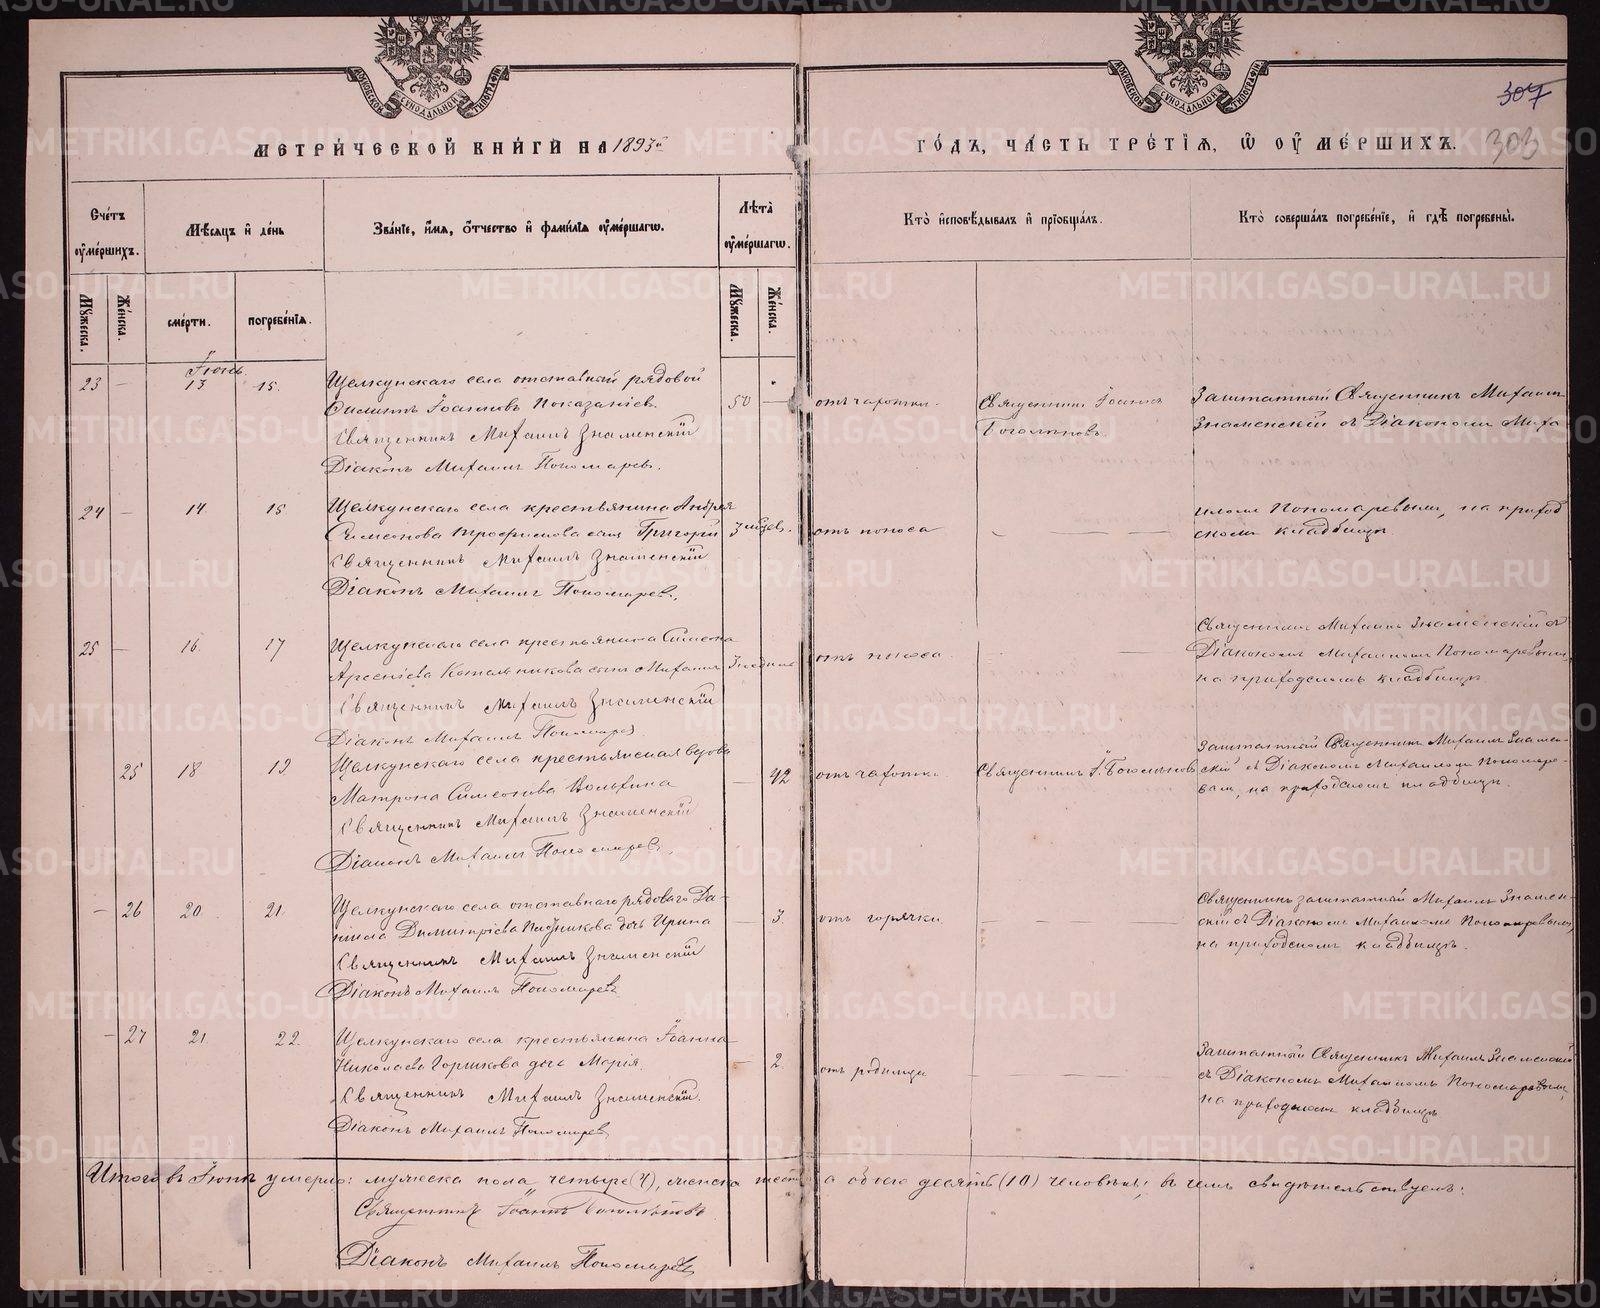 МЕТРИ́ЧЕСКОЙ КНИ́ГИ НА 1893й
ГО́ДЪ, ЧА́СТЬ ТРЕ́ТІѦ, Ѽ ОУ҆МЕ́РШИХЪ.
307
303
Сче́тъ оу҆ме́ршихъ.
Мѣ́сяцъ и҆ де́нь
Зва́нїе, и҆́мя, ѻ҆́тчество и҆ фами́лїя оу҆ме́ршагѡ.
Лѣ́та оу҆ме́ршагѡ.
Кто̀ и҆сповѣ́дывалъ и҆ прїобща́лъ.
Кто̀ соверша́лъ погребе́нїе, и҆ гдѣ̀ погребены̀.
Му́жеска.
Же́нска.
сме́рти.
погребе́нїя.
Му́жеска.
Же́нска.
Іюнь
23 — 13 15.
Щелкунскаго села отставный рядовой
Филиппъ Іоанновъ Показаніев
Священникъ Михаилъ Знаменскій
Діаконъ Михаилъ Пономарев.
50 —
отъ чахотки.
Священникъ Іоаннъ
Боголюбовъ.
Заштатный Священникъ Михаилъ
Знаменскій съ Діакономъ Миха
24 — 14 15
Щелкунскаго села крестьянина Андрея
Симеонова Трофимова сынъ Григорій
Священникъ Михаилъ Знаменскій
Діаконъ Михаилъ Пономарев.
3 мѣсяц.
отъ поноса
— — —
иломъ Пономаревымъ, на приход
скомъ кладбищѣ.
25 — 16. 17
Щелкунскаго села крестьянина Симеона
Арсеніева Котельникова сынъ Михаилъ
Священникъ Михаилъ Знаменскій
Діаконъ Михаилъ Пономарев
3 недѣли
отъ поноса.
Священникъ Михаилъ Знаменскій съ
Діакономъ Михаиломъ Пономаревымъ,
на приходскомъ кладбищѣ
25 18 19
Щелкунскаго села крестьянская вдова
Матрона Симеонова
Священникъ Михаилъ Знаменскій
Діаконъ Михаилъ Пономарев.
— 42
отъ чахотки
Священникъ І. Боголюбовъ
Заштатный Священникъ Михаилъ Знамен-
скій съ Діакономъ Михаиломъ Пономаре-
вым, на приходскомъ кладбищѣ.
— 26 20 21.
Щелкунскаго села отставнаго рядоваго Да-
ніила Димитріева дочь Ирина
Священникъ Михаилъ Знаменскій
Діаконъ Михаилъ Пономарев
3
отъ горячки
Священникъ заштатный Михаилъ Знамен-
скій съ Діакономъ Михаиломъ Пономаревымъ,
на приходскомъ кладбищѣ.
— 27 21. 22.
Щелкунскаго села крестьянина Іоанна
Николаева Горшкова дочь Марія.
Священникъ Михаилъ Знаменскій.
Діаконъ Михаилъ Пономарев
— 2.
отъ родимца
Заштатный Священникъ Михаилъ Знаменскій
съ Діакономъ Михаиломъ Пономаревымъ,
на приходскомъ кладбищѣ
Итого въ Іюнѣ умерло: мужеска пола четыре (4), женска шесть а обоего десять (10) человѣкъ; въ чемъ свидѣтельствуемъ:
Священникъ Іоаннъ Боголюбовъ
Діаконъ Михаилъ Пономарев
METRIKI.GASO-URAL.RU